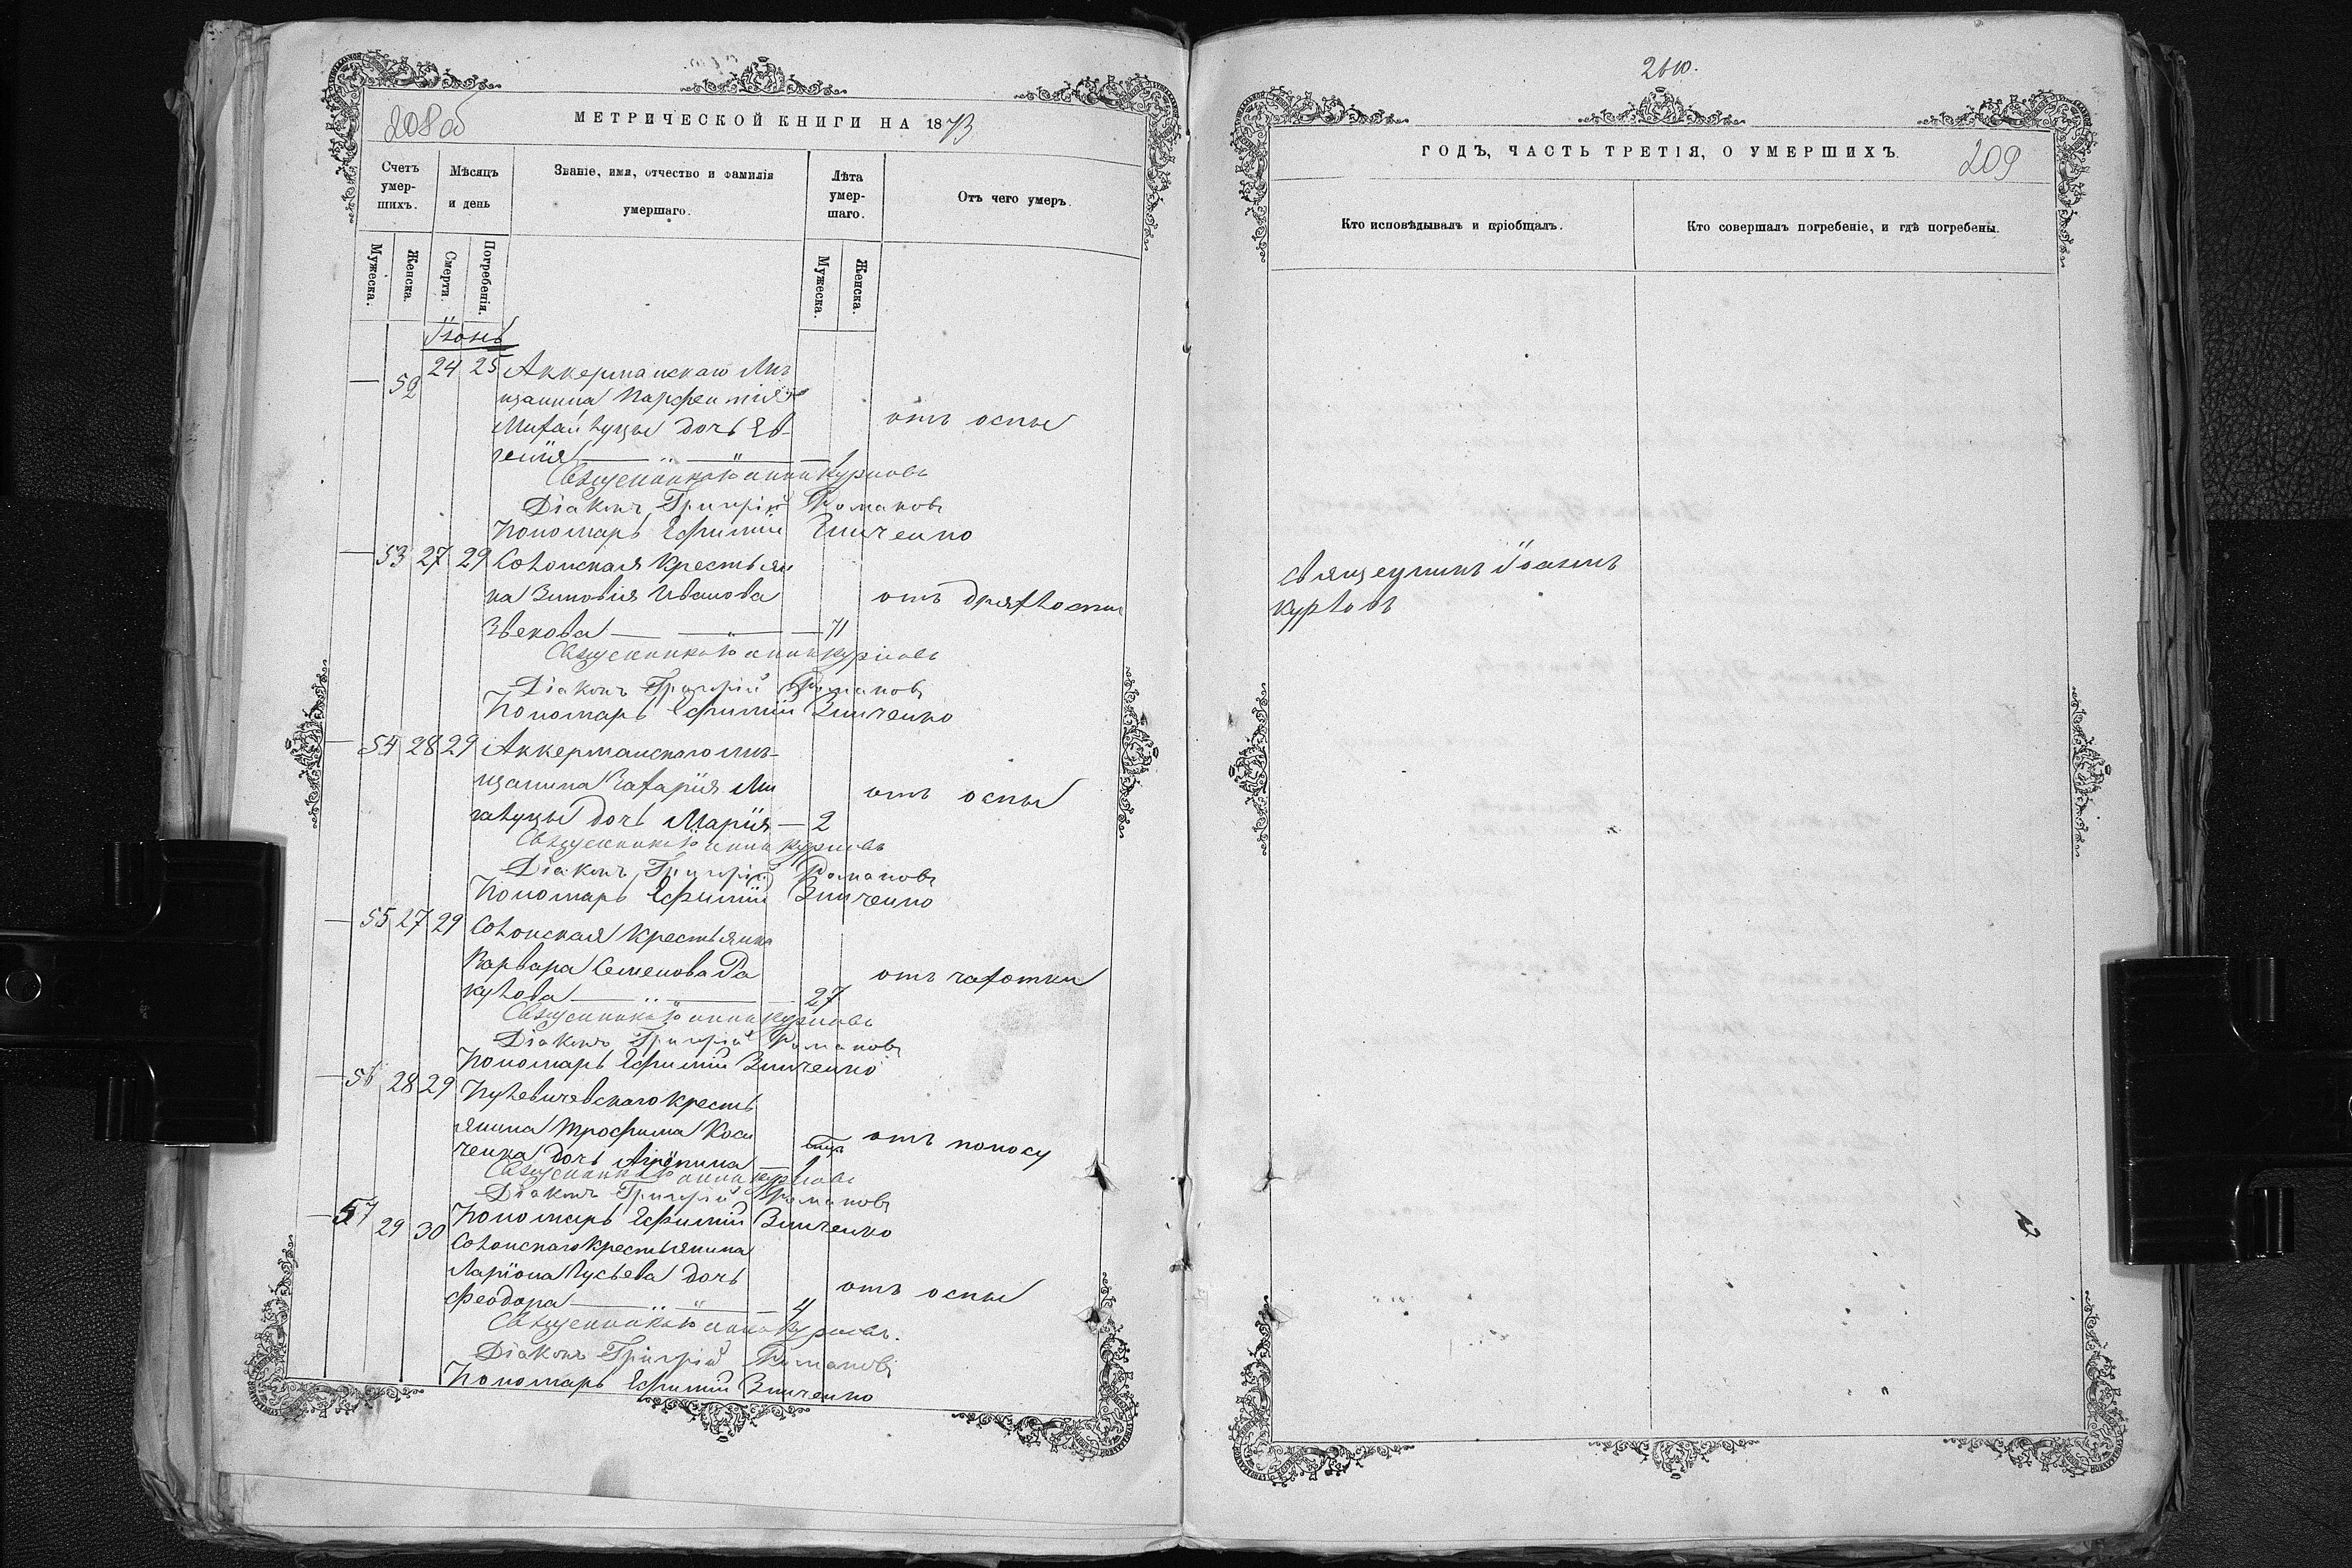 208об
МЕТРИЧЕСКОЙ КНИГИ НА 1873
Счетъ умер-шихъ.
Мѣсяцъ и день
Званіе, имя, отчество и фамилія умершаго.
Лѣта умер-шаго.
Отъ чего умеръ.
Мужеска.
Женска.
Смерти.
Погребенія.
Мужеска.
Женска.
Іюнь
52 24 25 Аккерманскаго Мѣ
щанина Парфентія
дочь Ев-
генія 1
отъ оспы
Священникъ Іоаннъ Курловъ
Діаконъ Григорій Романовъ
Пономарь Ефимій Зинченко
53 27 29 Солонская крестьян
ка Зиновія Иванова
Звекова 71
отъ дряхлости
Священникъ Іоаннъ Курловъ
Діаконъ Григорій Романовъ
Пономарь Ефимій Зинченко
54 28 29 Аккерманскаго мѣ-
щанина Захарія Ми
дочь Марія 2
отъ оспы
Священникъ Іоаннъ Курловъ
Діаконъ Григорій Романовъ
Пономарь Ефимій Зинченко
55 27 29 Солонская крестьянка
Варвара Семенова Ра
кулова 27
отъ чахотки
Священникъ Іоаннъ Курловъ
Діаконъ Григорій Романовъ
Пономарь Ефимій Зинченко
56 28 29 кресть
янина Трофима Коси
ченка дочь 1
отъ поносу
Священникъ Іоаннъ Курловъ
Діаконъ Григорій Романовъ
Пономарь Ефимій Зинченко
57 29 30 Солонскаго крестьянина
Ларіона Гусьева дочь
Феодора 4
отъ оспы
Священникъ Іоаннъ Курловъ.
Діаконъ Григорій Романовъ
Пономарь Ефимій Зинченко
210.
ГОДЪ, ЧАСТЬ ТРЕТІЯ, О УМЕРШИХЪ.
209
Кто исповѣдывалъ и пріобщалъ.
Кто совершалъ погребеніе, и гдѣ погребены.
Священникъ Іоаннъ
Курловъ